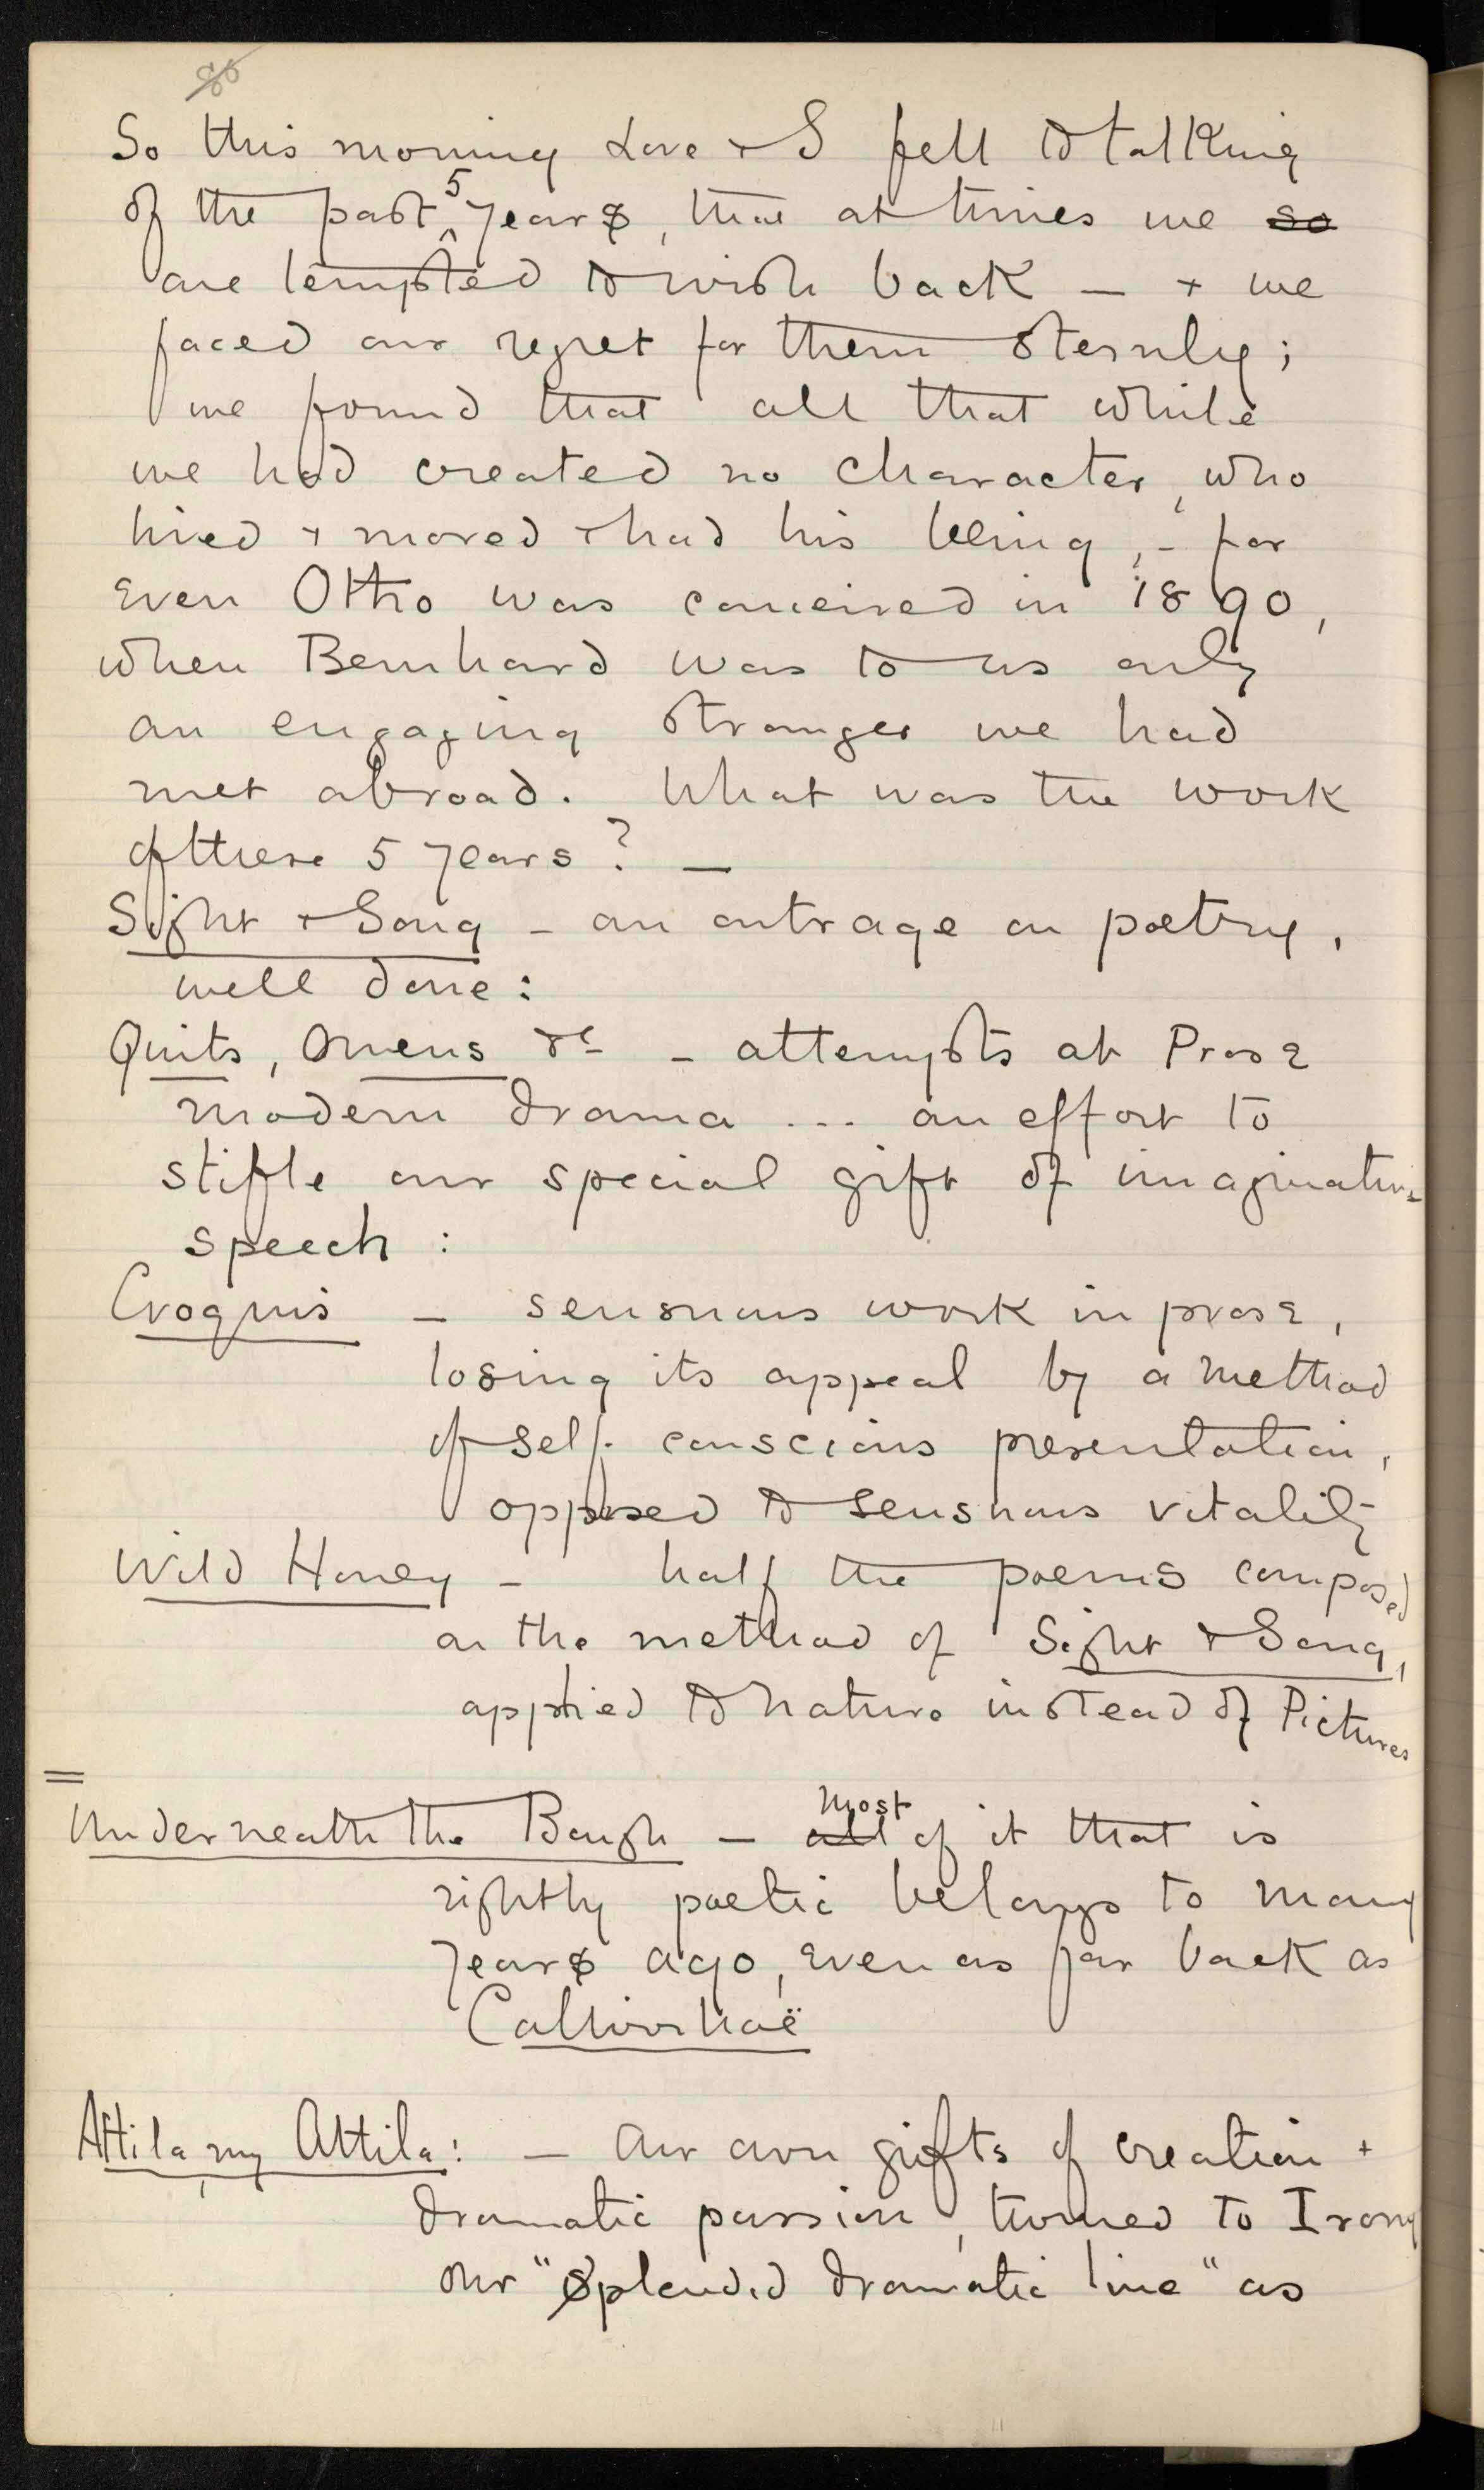 So this morning Love + I fell to talking
of the past 5 years, that at times we so
are tempted to wish back — + we
faced our regret for them sternly;
we found that all that while
we had created no character, who
lived + moved + had his being, – for
even Otho was conceived in 1890,
when Bernhard was to us only
an engaging stranger we had
met abroad. What was the work
of these 5 years? —
Sight + Song – an outrage on poetry,
well done:
Quits, Omens &c – attempts at Prose
modern drama ... an effort to
stifle our special gift of imaginative
speech :
Croquis – sensuous work in prose,
losing its appeal by a method
of self-conscious presentation,
opposed to sensuous vitality
Wild Honey – half the poems composed
on the method of Sight + Song,
applied to nature instead of Pictures
=
Underneath the Bough – all most of it that is
rightly poetic belongs to many
years ago, even as far back as
Callirrhoë
Attila, my Attila: – Our own gifts of creation +
dramatic passion, turned to Irony
our "Splendid dramatic line" as